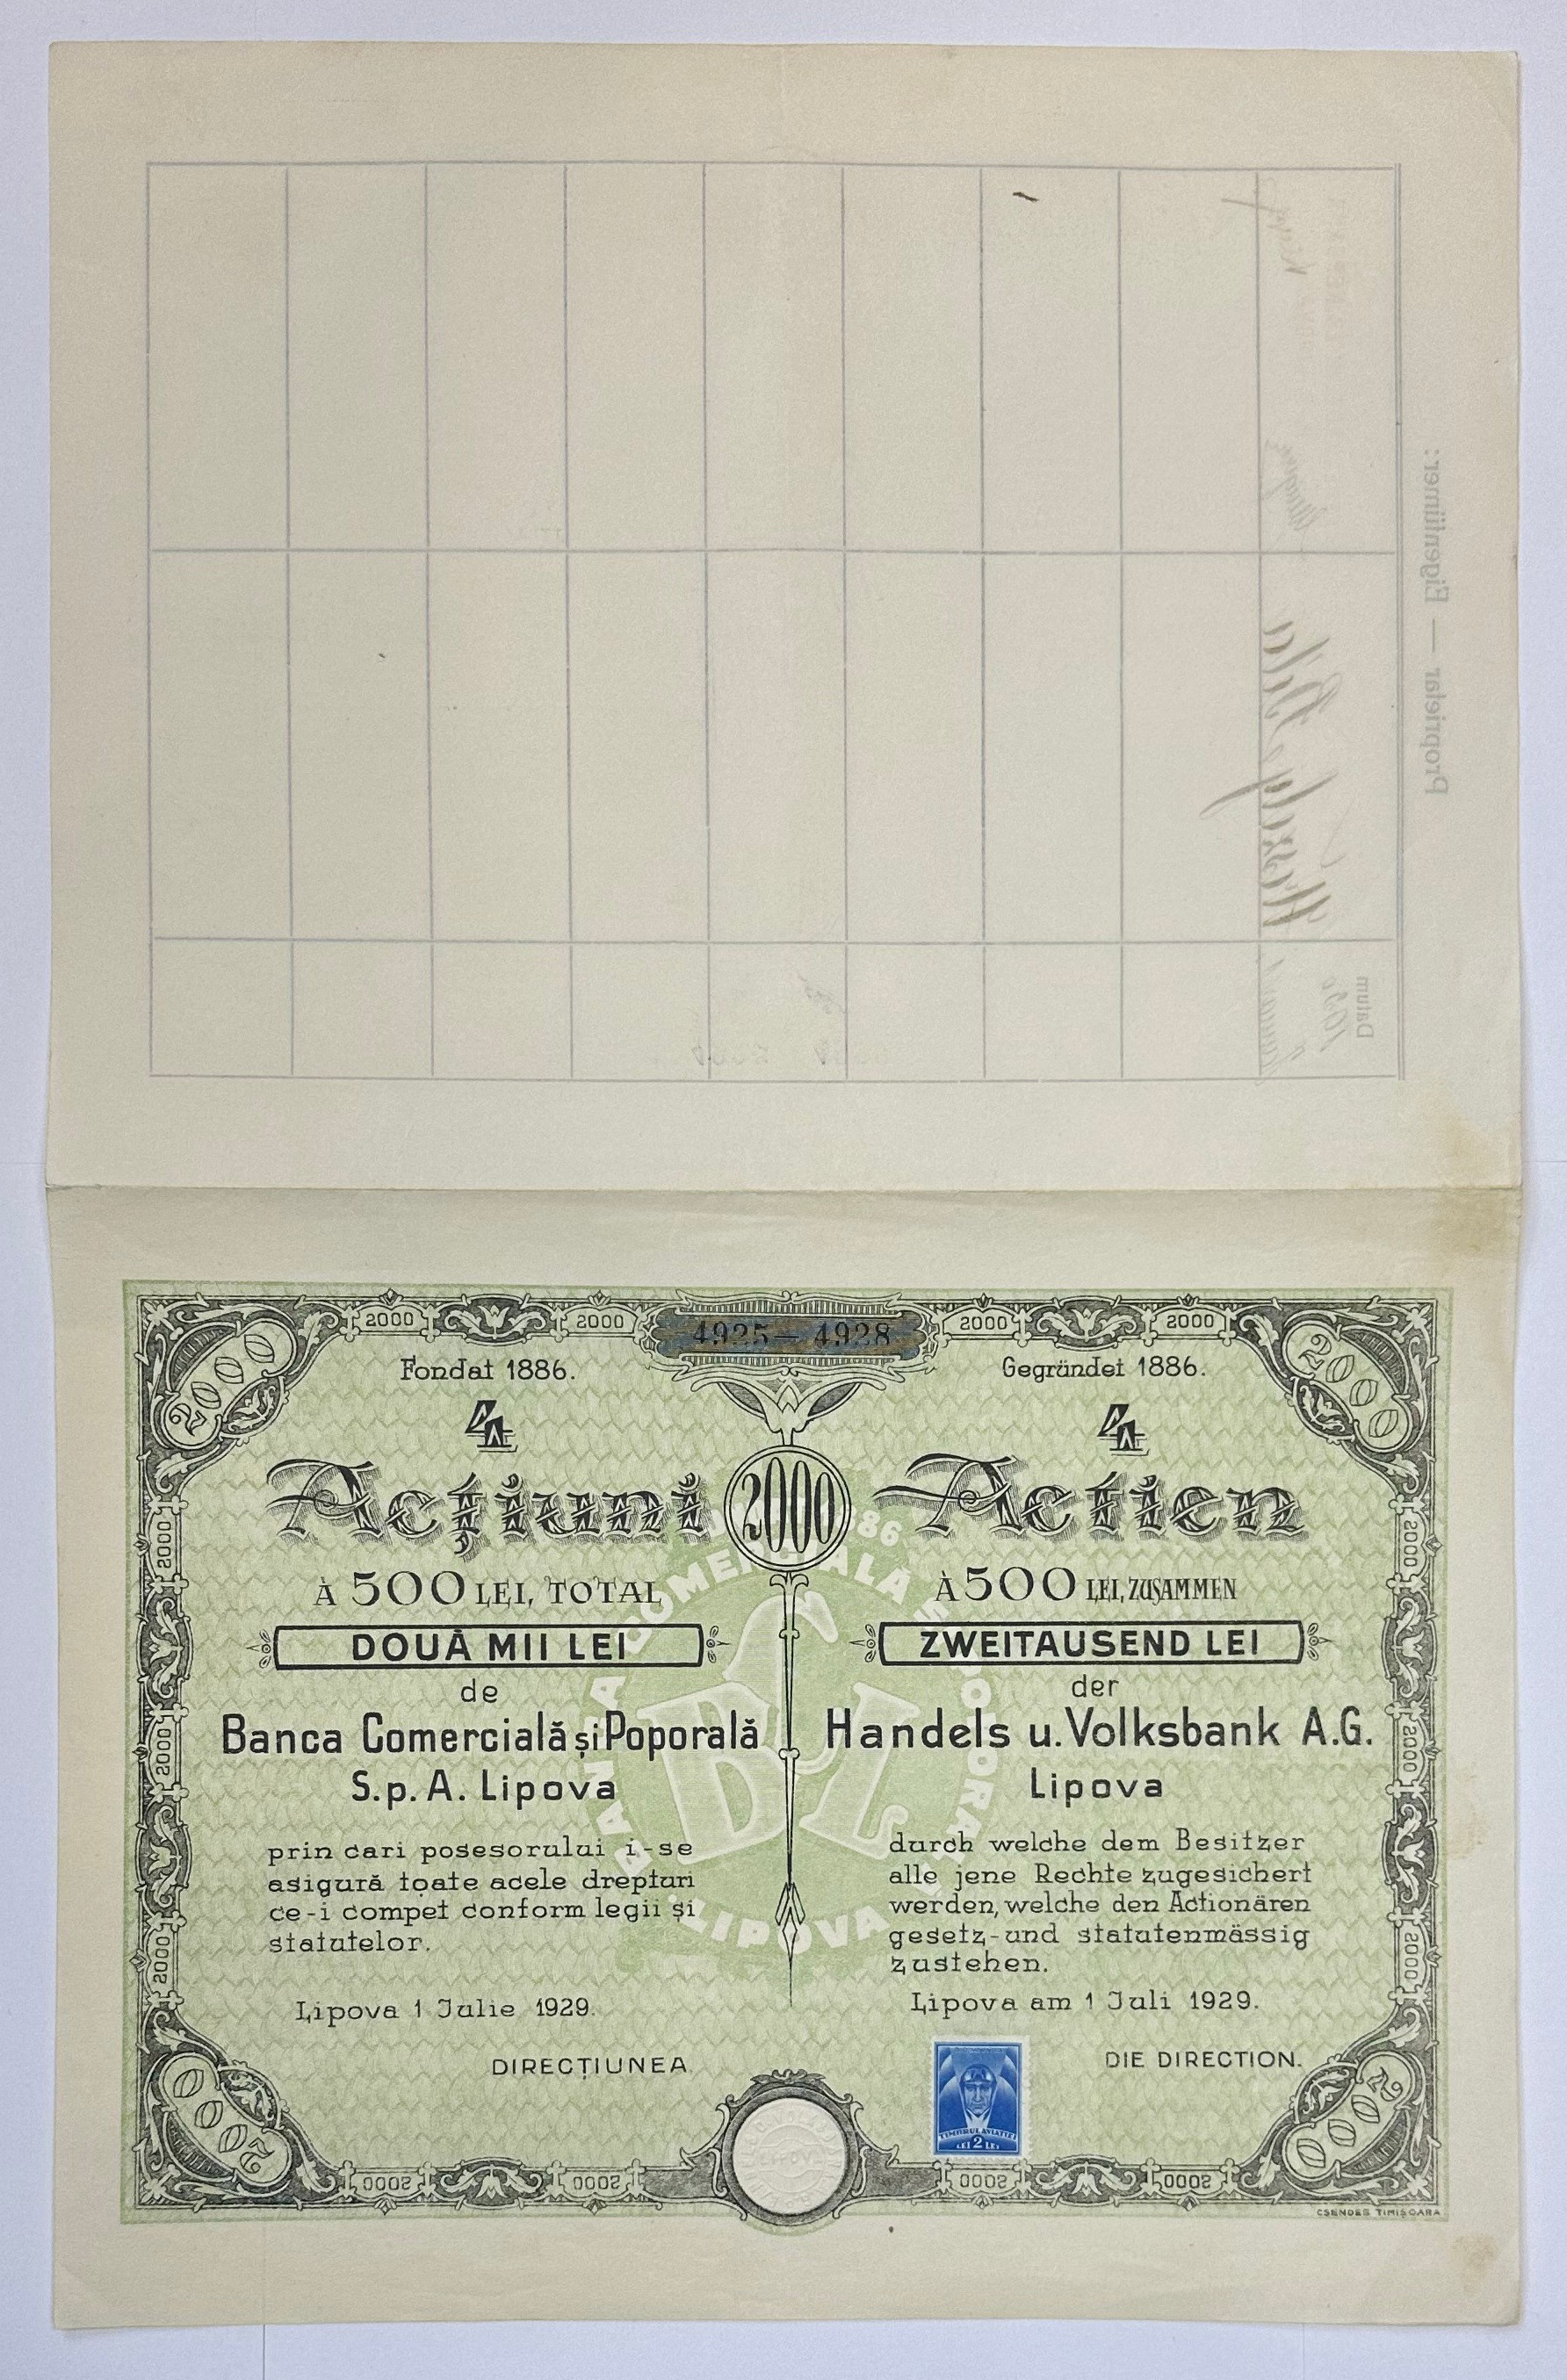 Proprietar — Eigentümer:
Datum
2000
2000
2000
4925 — 4928
2000
2000
2000
Fondat 1886.
4
Acțiuni
À 500 LEI, TOTAL
DOUĂ MII LEI
de
Banca Comercială și Poporală
S.p.A. Lipova
prin cari posesorului i-se
asigură toate acele drepturi
ce-i compet conform legii și
statutelor.
Lipova 1 Julie 1929.
DIRECȚIUNEA
2000
Gegründet 1886.
4
Actien
À 500 LEI, ZUSAMMEN
ZWEITAUSEND LEI
der
Handels u. Volksbank A.G.
Lipova
durch welche dem Besitzer
alle jene Rechte zugesichert
werden, welche den Actionären
gesetz-und statutenmässig
zustehen.
Lipova am 1 Juli 1929.
DIE DIRECTION.
BANCA COMERCIALĂ ȘI POPORALĂ
LIPOVA
BCL
2000
2000
2000
2000
2000
2000
TIMBRUL AVIAȚIEI
LEI 2 LEI
2000
2000
2000
2000
2000
2000
CSENDES TIMIȘOARA